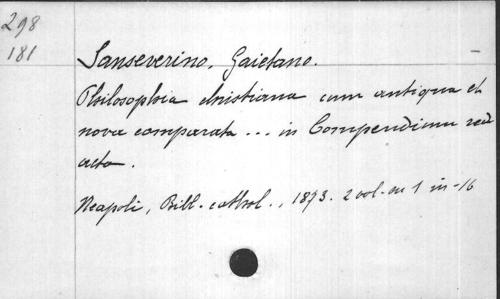 298
181
Sanseverino, Gaietano.
Philosophia christiana cum antiqua et
nova comparata ... in Compendium red
acta.
Neapoli, Bibl. cathol., 1873. 2 vol. en 1 in-16